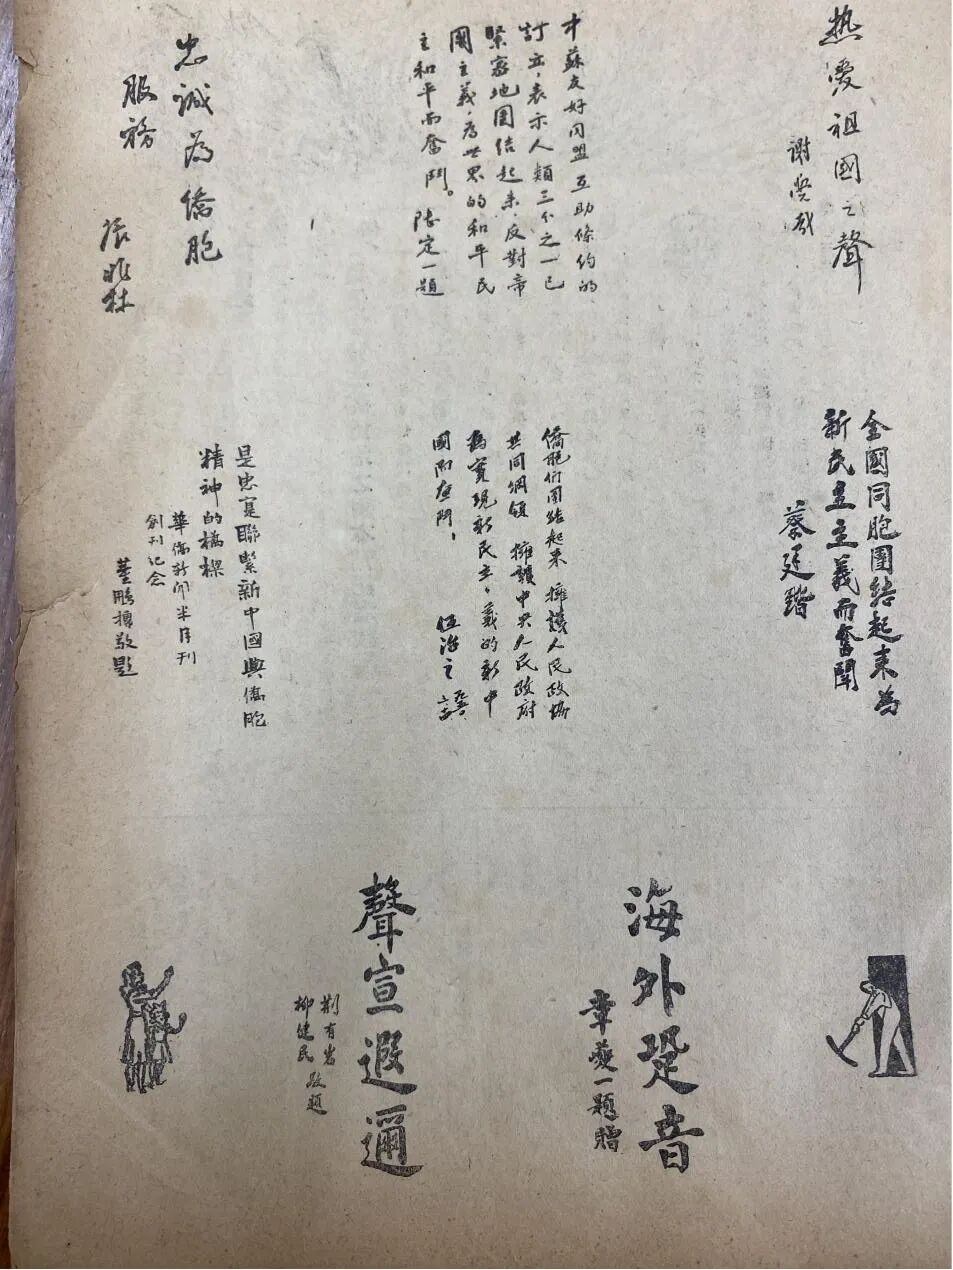 热愛祖國之聲
中蘇友好同盟互助條約的
訂立,表示人類三分之一已
緊密地團結起来,反對帝
國主義,為世界的和平民
主和平而奮鬥。 陸定一題
忠誠為僑胞
服務
全國同胞團結起来為
新民主主義而奮鬪
蔡廷鍇
僑胞們團結起来 擁護人民政協
共同綱領 擁護中央人民政府
為實現新民主主義的新中
國而奋鬥, 伍治之 譔
是忠實聯繫新中國與僑胞
精神的橋樑
華僑新聞半月刊
創刊记念
董 敬題
海外跫音
章夔一題贈
聲宣遐邇
荆有岩
柳健民 敬題